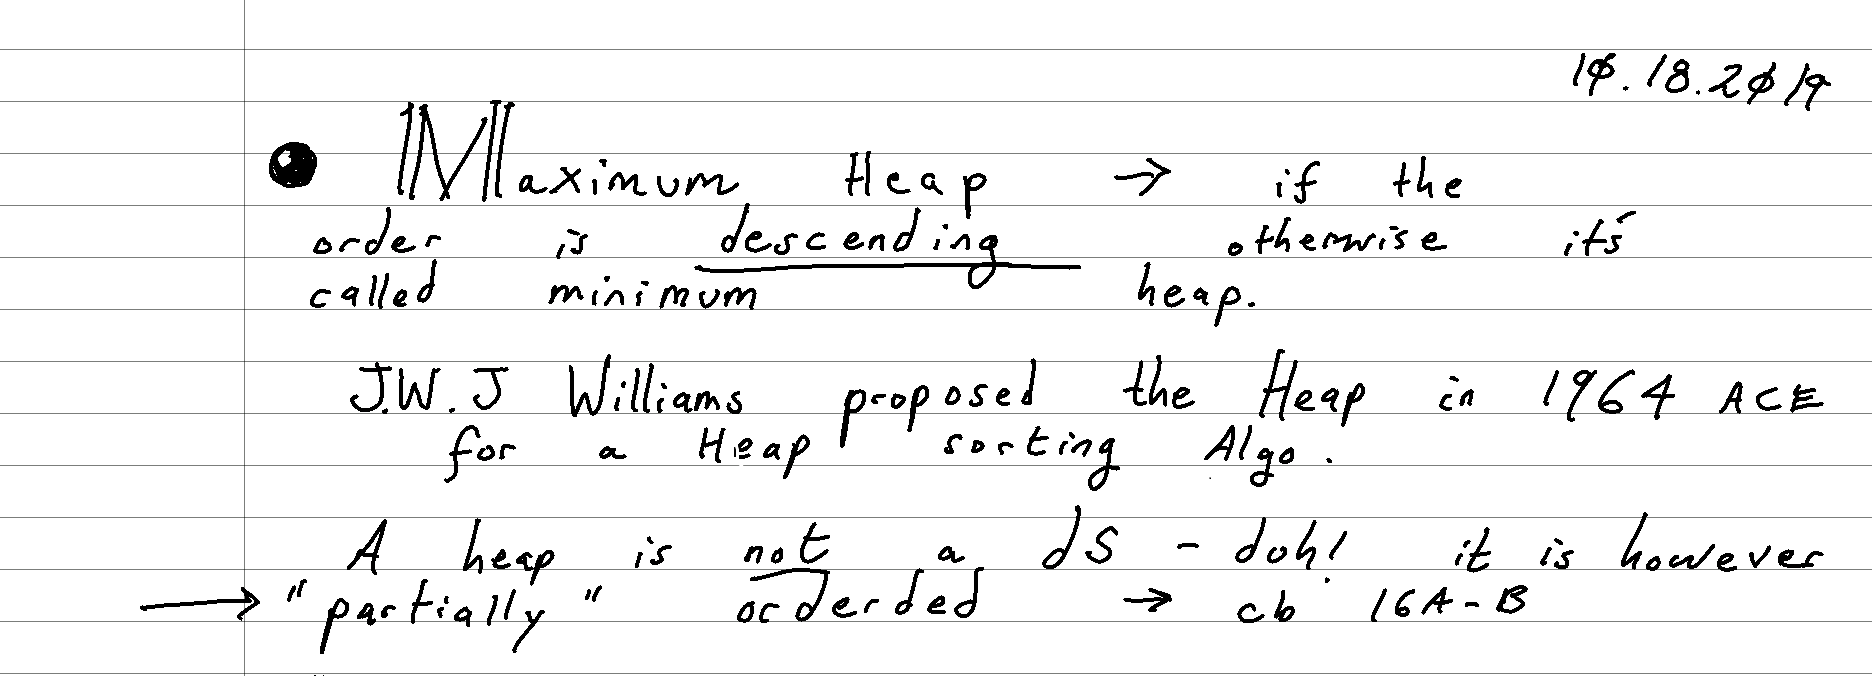 10.18.2019
Maximum Heap → if the
order is descending otherwise it's
called minimum heap.
J.W.J Williams proposed the Heap in 1964 ACE
for a Heap sorting Algo.
A heap is not a dS - doh! it is however
→ "partially" orderded → cb 16A-B